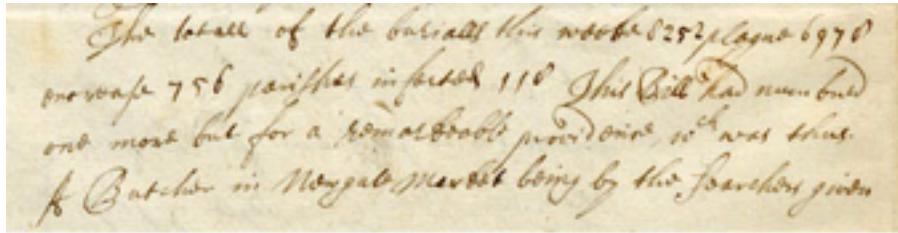 The totall of the burialls this weeke 8252 plague 6978
encrease 756 parishes infected 118 This Bill had numbred
one more but for a remarkeable providence, wch was thus.
A Butcher in Newgate Market being by the Searchers given